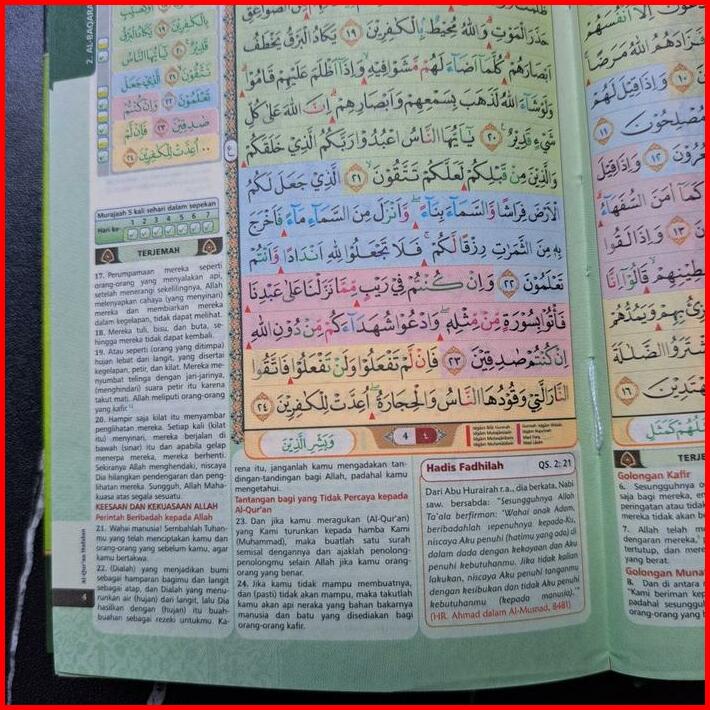 2. AL-BAQARA
بِالْكٰفِرِيْنَ ۝١٩ يَكَادُ الْبَرْقُ
قَدِيْرٌ ۝٢٠ يٰٓاَيُّهَا النَّاسُ
تَتَّقُوْنَ ۝٢١ الَّذِيْ جَعَلَ
تَعْلَمُوْنَ ۝٢٢ وَاِنْ كُنْتُمْ
صٰدِقِيْنَ ۝٢٣ فَاِنْ لَّمْ
اُعِدَّتْ لِلْكٰفِرِيْنَ ۝٢٤
Murajaah 5 kali sehari dalam sepekan
Hari ke 1 2 3 4 5 6 7
حَذَرَ الْمَوْتِۗ وَاللّٰهُ مُحِيْطٌۢ بِالْكٰفِرِيْنَ ۝١٩ يَكَادُ الْبَرْقُ يَخْطَفُ
اَبْصَارَهُمْۗ كُلَّمَآ اَضَاۤءَ لَهُمْ مَّشَوْا فِيْهِۙ وَاِذَآ اَظْلَمَ عَلَيْهِمْ قَامُوْاۗ
وَلَوْ شَاۤءَ اللّٰهُ لَذَهَبَ بِسَمْعِهِمْ وَاَبْصَارِهِمْۗ اِنَّ اللّٰهَ عَلٰى كُلِّ
شَيْءٍ قَدِيْرٌ ۝٢٠ يٰٓاَيُّهَا النَّاسُ اعْبُدُوْا رَبَّكُمُ الَّذِيْ خَلَقَكُمْ
وَالَّذِيْنَ مِنْ قَبْلِكُمْ لَعَلَّكُمْ تَتَّقُوْنَۙ ۝٢١ الَّذِيْ جَعَلَ لَكُمُ
الْاَرْضَ فِرَاشًا وَّالسَّمَاۤءَ بِنَاۤءًۖ وَّاَنْزَلَ مِنَ السَّمَاۤءِ مَاۤءً فَاَخْرَجَ
بِهٖ مِنَ الثَّمَرٰتِ رِزْقًا لَّكُمْۚ فَلَا تَجْعَلُوْا لِلّٰهِ اَنْدَادًا وَّاَنْتُمْ
تَعْلَمُوْنَ ۝٢٢ وَاِنْ كُنْتُمْ فِيْ رَيْبٍ مِّمَّا نَزَّلْنَا عَلٰى عَبْدِنَا
فَأْتُوْا بِسُوْرَةٍ مِّنْ مِّثْلِهٖۖ وَادْعُوْا شُهَدَاۤءَكُمْ مِّنْ دُوْنِ اللّٰهِ
اِنْ كُنْتُمْ صٰدِقِيْنَ ۝٢٣ فَاِنْ لَّمْ تَفْعَلُوْا وَلَنْ تَفْعَلُوْا فَاتَّقُوا
النَّارَ الَّتِيْ وَقُوْدُهَا النَّاسُ وَالْحِجَارَةُۖ اُعِدَّتْ لِلْكٰفِرِيْنَ ۝٢٤
وَبَشِّرِ الَّذِيْنَ
4 ٤
TERJEMAH
17. Perumpamaan mereka seperti
orang-orang yang menyalakan api,
setelah menerangi sekelilingnya, Allah
melenyapkan cahaya (yang menyinari)
mereka dan membiarkan mereka
dalam kegelapan, tidak dapat melihat.
18. Mereka tuli, bisu, dan buta, se-
hingga mereka tidak dapat kembali.
19. Atau seperti (orang yang ditimpa)
hujan lebat dari langit, yang disertai
kegelapan, petir, dan kilat. Mereka me-
nyumbat telinga dengan jari-jarinya,
(menghindari) suara petir itu karena
takut mati. Allah meliputi orang-orang
yang kafir
20. Hampir saja kilat itu menyambar
penglihatan mereka. Setiap kali (kilat
itu) menyinari, mereka berjalan di
bawah (sinar) itu dan apabila gelap
menerpa mereka, mereka berhenti.
Sekiranya Allah menghendaki, niscaya
Dia hilangkan pendengaran dan peng-
lihatan mereka. Sungguh, Allah Maha-
kuasa atas segala sesuatu.
KEESAAN DAN KEKUASAAN ALLAH
Perintah Beribadah kepada Allah
21. Wahai manusia! Sembahlah Tuhan-
mu yang telah menciptakan kamu dan
orang-orang yang sebelum kamu, agar
kamu bertakwa.
22. (Dialah) yang menjadikan bumi
sebagai hamparan bagimu dan langit
sebagai atap, dan Dialah yang menu-
runkan air (hujan) dari langit, lalu Dia
hasilkan dengan (hujan) itu buah-
buahan sebagai rezeki untukmu. Ka-
4
rena itu, janganlah kamu mengadakan tan-
dingan-tandingan bagi Allah, padahal kamu
mengetahui.
Tantangan bagi yang Tidak Percaya kepada
Al-Qur'an
23. Dan jika kamu meragukan (Al-Qur'an)
yang Kami turunkan kepada hamba Kami
(Muhammad), maka buatlah satu surah
semisal dengannya dan ajaklah penolong-
penolongmu selain Allah jika kamu orang-
orang yang benar.
24. Jika kamu tidak mampu membuatnya,
dan (pasti) tidak akan mampu, maka takutlah
kamu akan api neraka yang bahan bakarnya
manusia dan batu yang disediakan bagi
orang-orang kafir.
Hadis Fadhilah QS. 2: 21
Dari Abu Hurairah r.a., dia berkata, Nabi
saw. bersabda: "Sesungguhnya Allah
Ta'ala berfirman: 'Wahai anak Adam,
beribadahlah sepenuhnya kepada-Ku,
niscaya Aku penuhi (hatimu yang ada) di
dalam dada dengan kekayaan dan Aku
penuhi kebutuhanmu. Jika tidak kalian
lakukan, niscaya Aku penuhi tanganmu
dengan kesibukan dan tidak Aku penuhi
kebutuhanmu (kepada manusia).'"
(HR. Ahmad dalam Al-Musnad, 8481)
TERJE
Golongan Kafir
6. Sesungguhnya o
saja bagi mereka, en
peringatan atau tidak
mereka tidak akan b
7. Allah telah m
dengaran mereka,
tertutup, dan mere
yang berat.
Golongan Munaf
8. Dan di antara
"Kami beriman kep
padahal sesunggul